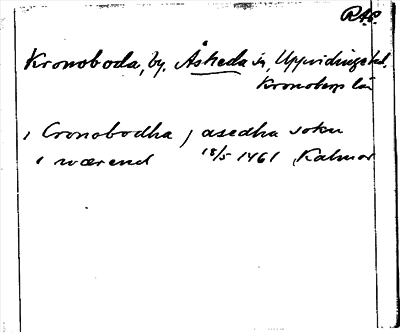 RAP.
Kronoboda, by, Åskeda sn, Uppvidinge hd,
Kronobergs län
i Cronobodha j asedha sokn
i wærend 18/5 1461 Kalmar